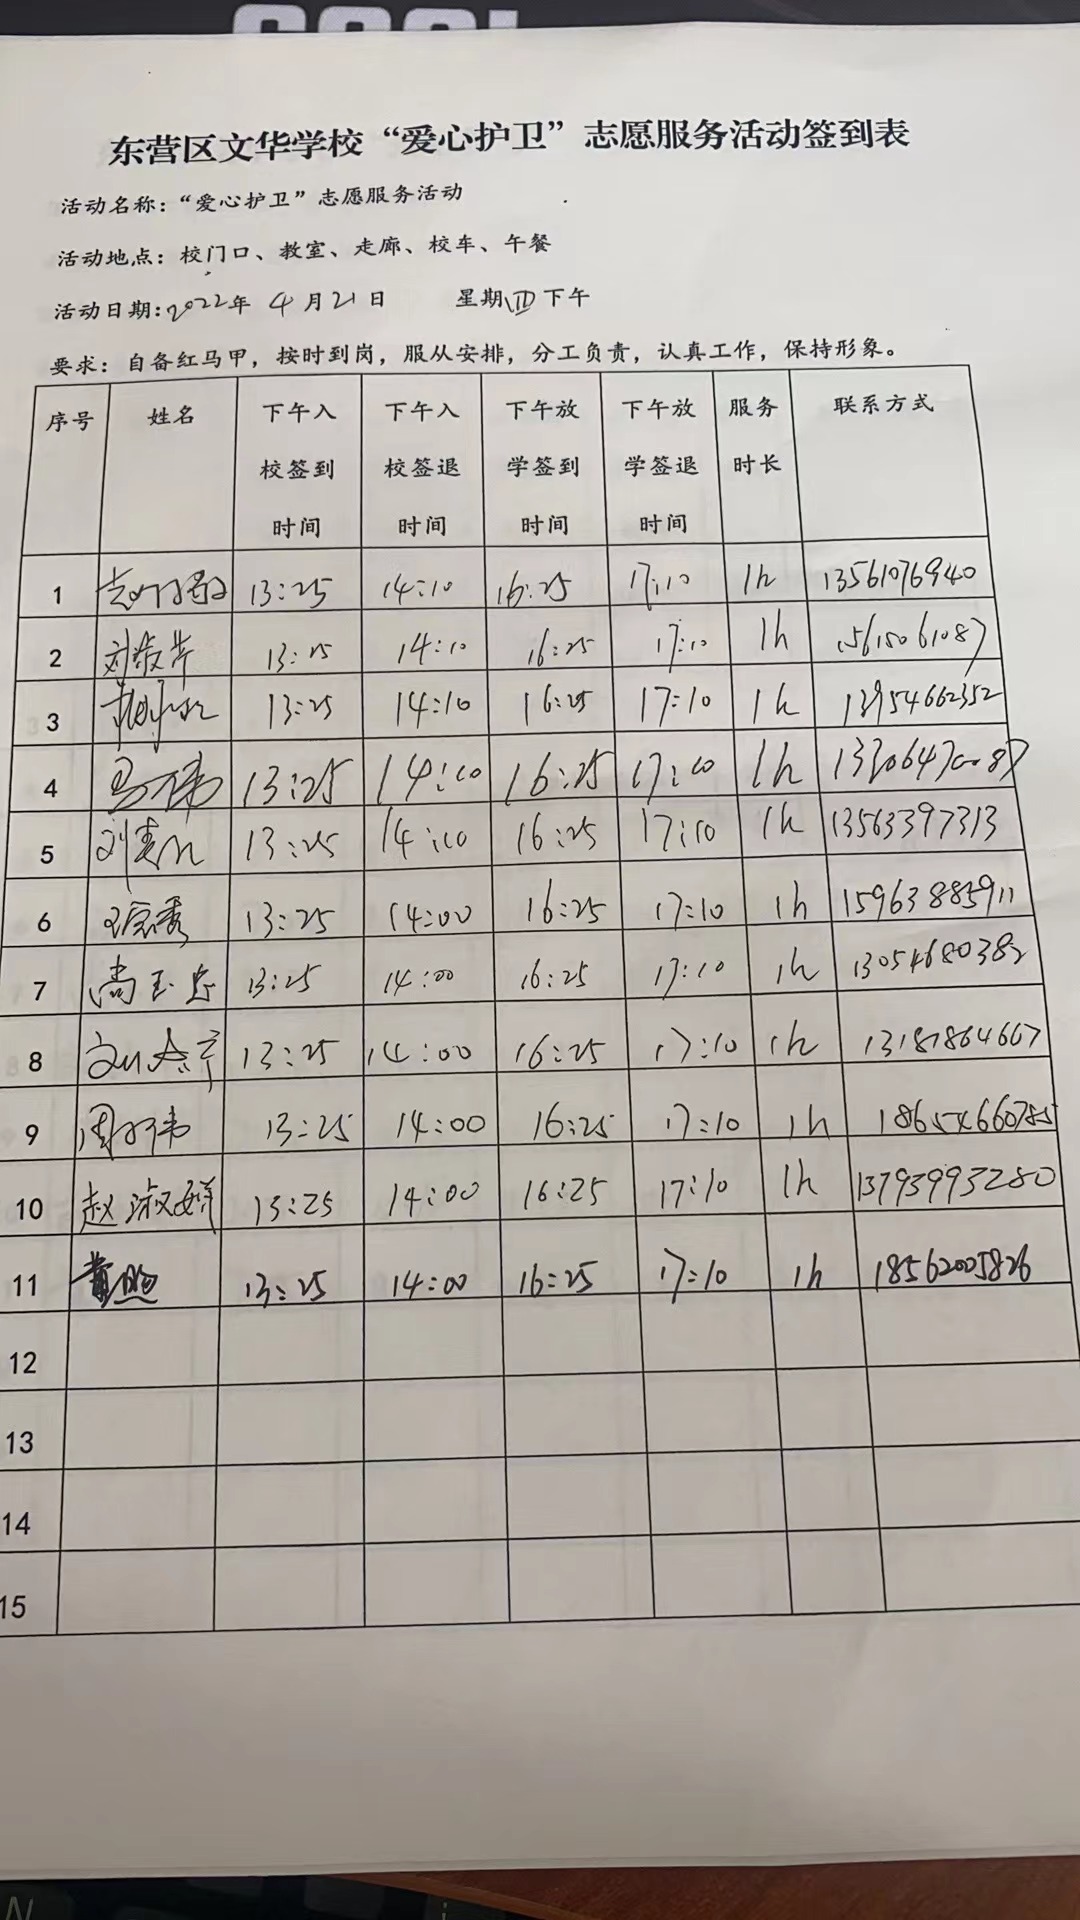 东营区文华学校“爱心护卫”志愿服务活动签到表
活动名称：“爱心护卫”志愿服务活动
活动地点：校门口、教室、走廊、校车、午餐
活动日期：2022年 4月21日 星期四下午
要求：自备红马甲，按时到岗，服从安排，分工负责，认真工作，保持形象。
序号 姓名 下午入校签到时间 下午入校签退时间 下午放学签到时间 下午放学签退时间 服务时长 联系方式
1 13:25 14:10 16:25 17:10 1h 13561076940
2 13:25 14:10 16:25 17:10 1h 15615061087
3 13:25 14:10 16:25 17:10 1h 13954662352
4 马伟 13:25 14:10 16:25 17:10 1h
5 13:25 14:10 16:25 17:10 1h 13563397313
6 13:25 14:00 16:25 17:10 1h 15963885911
7 尚玉忠 13:25 14:00 16:25 17:10 1h 13054680382
8 13:25 14:00 16:25 17:10 1h 13181864667
9 13:25 14:00 16:25 17:10 1h
10 赵淑娟 13:25 14:00 16:25 17:10 1h 13793993280
11 黄艳 13:25 14:00 16:25 17:10 1h 18562005826
12
13
14
15